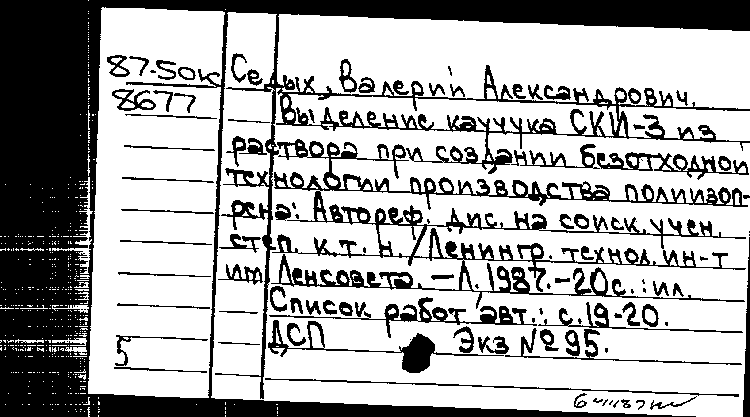 87-50к Седых, Валерий Александрович.
8677 Выделение каучука СКИ-3 из
раствора при создании безотходной
технологии производства полиизоп-
рена: Автореф. дис. на соиск. учен.
степ. к.т.н. / Ленингр. технол. ин-т
им Ленсовета. — Л. 1987. - 20с. : ил.
Список работ авт.: с. 19-20.
5 ДСП Экз № 95.